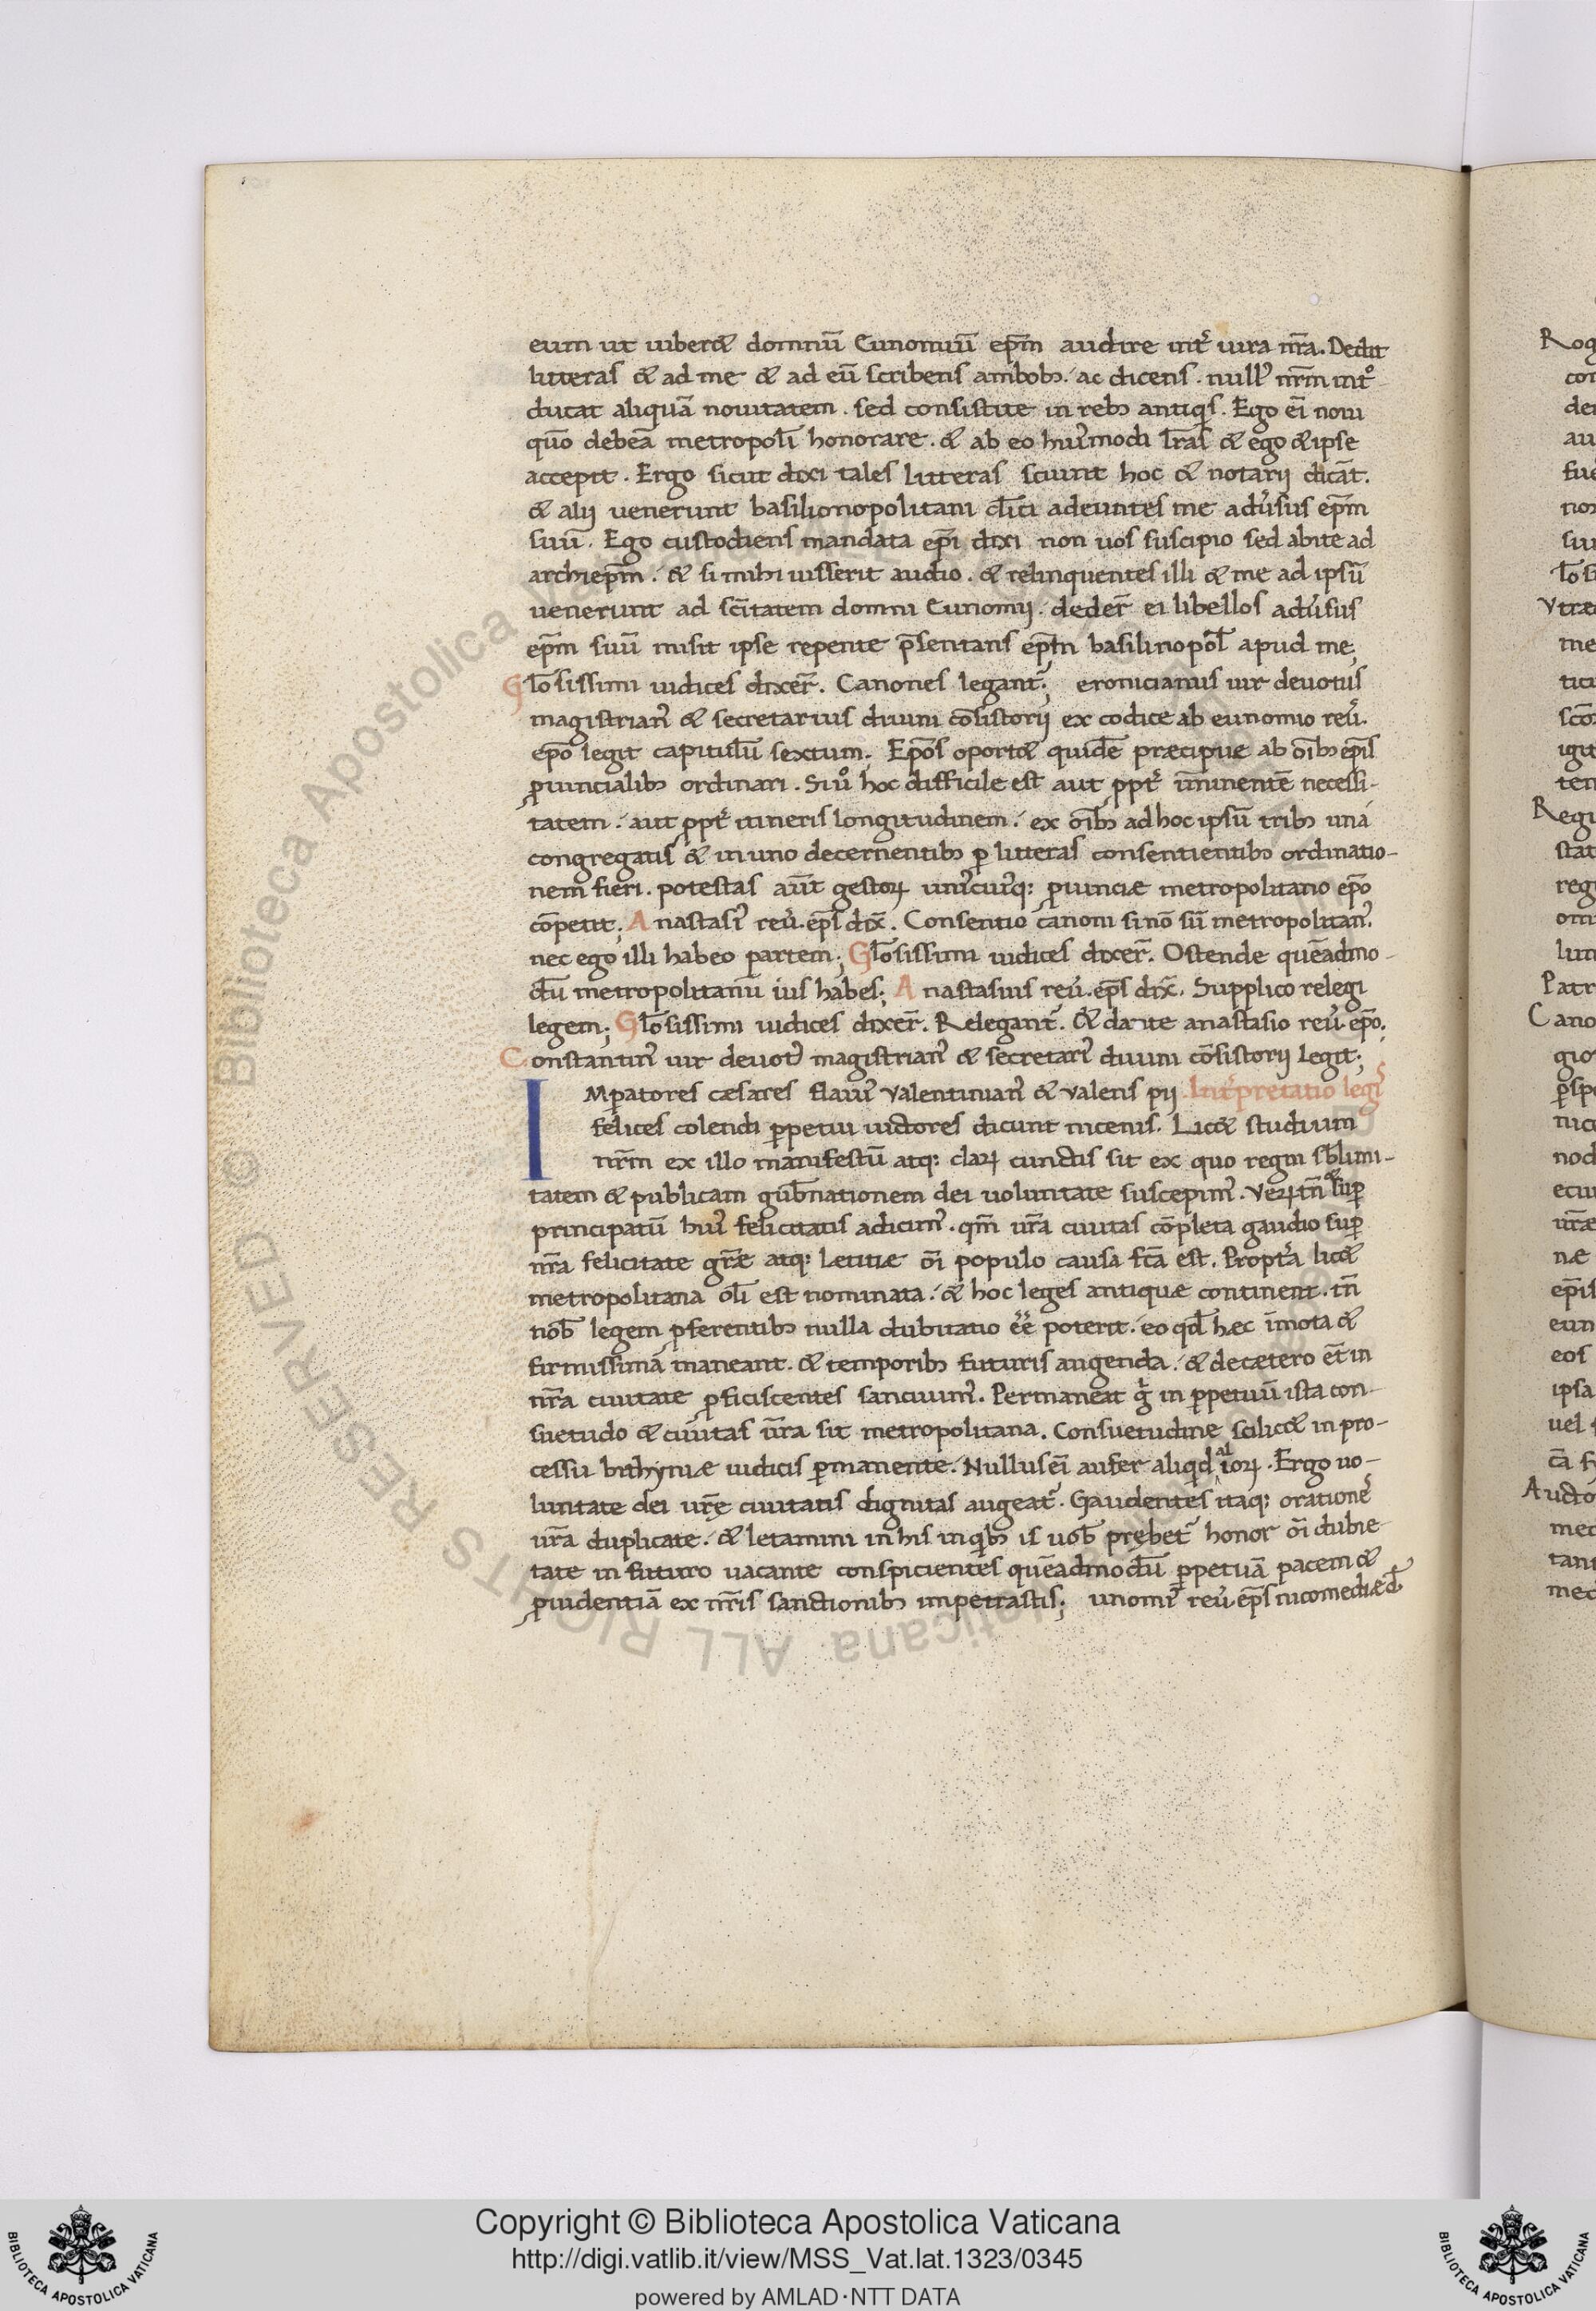 eum ut iuberet domnũ Eunomiũ ep̃m audire int̉ iura nr̃a. Dedit
litteras et ad me et ad eũ scribens ambobꝫ. ac dicens. null᾽ nr̃m int̊
ducat aliquã nouitatem. sed consistite in rebꝫ antiqͥs. Ego eĩ noui
quõ debeã metropolĩ honorare. et ab eo hui᾽modi lr̃as et ego et ipse
accepit. Ergo sicut dixi tales litteras sciunt hoc et notarij dicãt.
et alij uenerunt basilionopolitani cl̃ici adeuntes me adu̓sus ep̃m
suũ. Ego custodiens mandata ep̃i dixi non uos suscipio sed abite ad
archiep̃m. et si mihi iusserit audio. et relinquentes illi et me ad ipsũ
uenerunt ad sc̃itatem domni Eunomij. deder̃ ei libellos adu̓sus
ep̃m suũ misit ipse repente p̃sentans ep̃m basilinopol̃ apud me;
Gl̃osissimi iudices dixer̃. Canones legant᷑; eronicianus uir deuotus
magistrian᾽ et secretarius diuini cõsistorij ex codice ab eunomio reu̓.
ep̃o legit capitulũ sextum; Ep̃os oportet quidẽ præcipue ab oĩbꝫ ep̃is
ꝓuincialibꝫ ordinari. Siů hoc difficile est aut ꝓpt̉ ĩminentẽ necessi-
tatem. aut ꝓpt̉ itineris longitudinem. ex oĩbꝫ ad hoc ipsũ tribꝫ una
congregatis et in uno decernentibꝫ ꝑ litteras consentientibꝫ ordinatio-
nem fieri. potestas aũt gestoꝝ unic̉ui᾽qꝫ ꝓuinciæ metropolitano ep̃o
cõpetit; Anastasi᾽ reu̓. ep̃s dix̃. Consentio canoni si nõ sũ metropolitan᾽.
nec ego illi habeo partem; Gl̃osissimi iudices dixer̃. Ostende quẽadmo-
dũ metropolitanũ ius habes; Anastasius reu̓. ep̃s dix̃. Supplico relegi
legem; Gl̃osissimi iudices dixer̃. Relegant᷑. Et dante anastasio reu̓. ep̃o.
Constantin᾽ uir deuot᾽ magistrian᾽ et secretari᾽ diuini cõsistorij legit;
IMꝑatores cæsares flaui᾽ Valentinian᾽ et Valens pij Int̉pretatio legis
felices colendi ꝑpetui uictores dicunt nicenis. Licet studium
nr̃m ex illo manifestũ atqꝫ claꝝ cunctis sit ex quo regni sb̃limi-
tatem et publicam gub̃nationem dei uoluntate suscepim᾽. Veꝝtñ et suꝑ
principatũ hui᾽ felicitatis adicim᾽. qm̃ ur̃a ciuitas cõpleta gaudio suꝑ
nr̃a felicitate gr̃e atqꝫ letitiæ oĩ populo causa fc̃a est. Propt̉a licet
metropolitana olĩ est nominata. et hoc leges antiquæ continent. tñ
nob̃ legem ꝓferentibꝫ nulla dubitatio eẽ poterit. eo qd̃ hæc ĩmota et
firmissimã maneant. et temporibꝫ futuris augenda. et decætero et̃ in
nr̃a ciuitate ꝓficiscentes sanciuim᾽. Permaneat gͦ in ꝑpetuũ ista con-
suetudo et ciuitas ur̃a sit metropolitana. Consuetudine scilicet in pro-
cessu bithyniæ iudicis ꝑmanente. Nullus eĩ aufer aliqͥd al ioꝝ. Ergo uo-
luntate dei ur̃ę ciuitatis dignitas augeat᷑. Gaudentes itaqꝫ orationes
ur̃a duplicate. et letamini in his in qͥbꝫ is uob̃ prębet᷑ honor oĩ dubie-
tate in futuro uacante conspicientes quẽadmodũ ꝑpetuã pacem et
ꝓuidentiã ex nr̃is sanctionibꝫ impetrastis; unomi᾽ reu̓. ep̃s nicomediæ d̃
Copyright © Biblioteca Apostolica Vaticana
http://digi.vatlib.it/view/MSS_Vat.lat.1323/0345
powered by AMLAD·NTT DATA